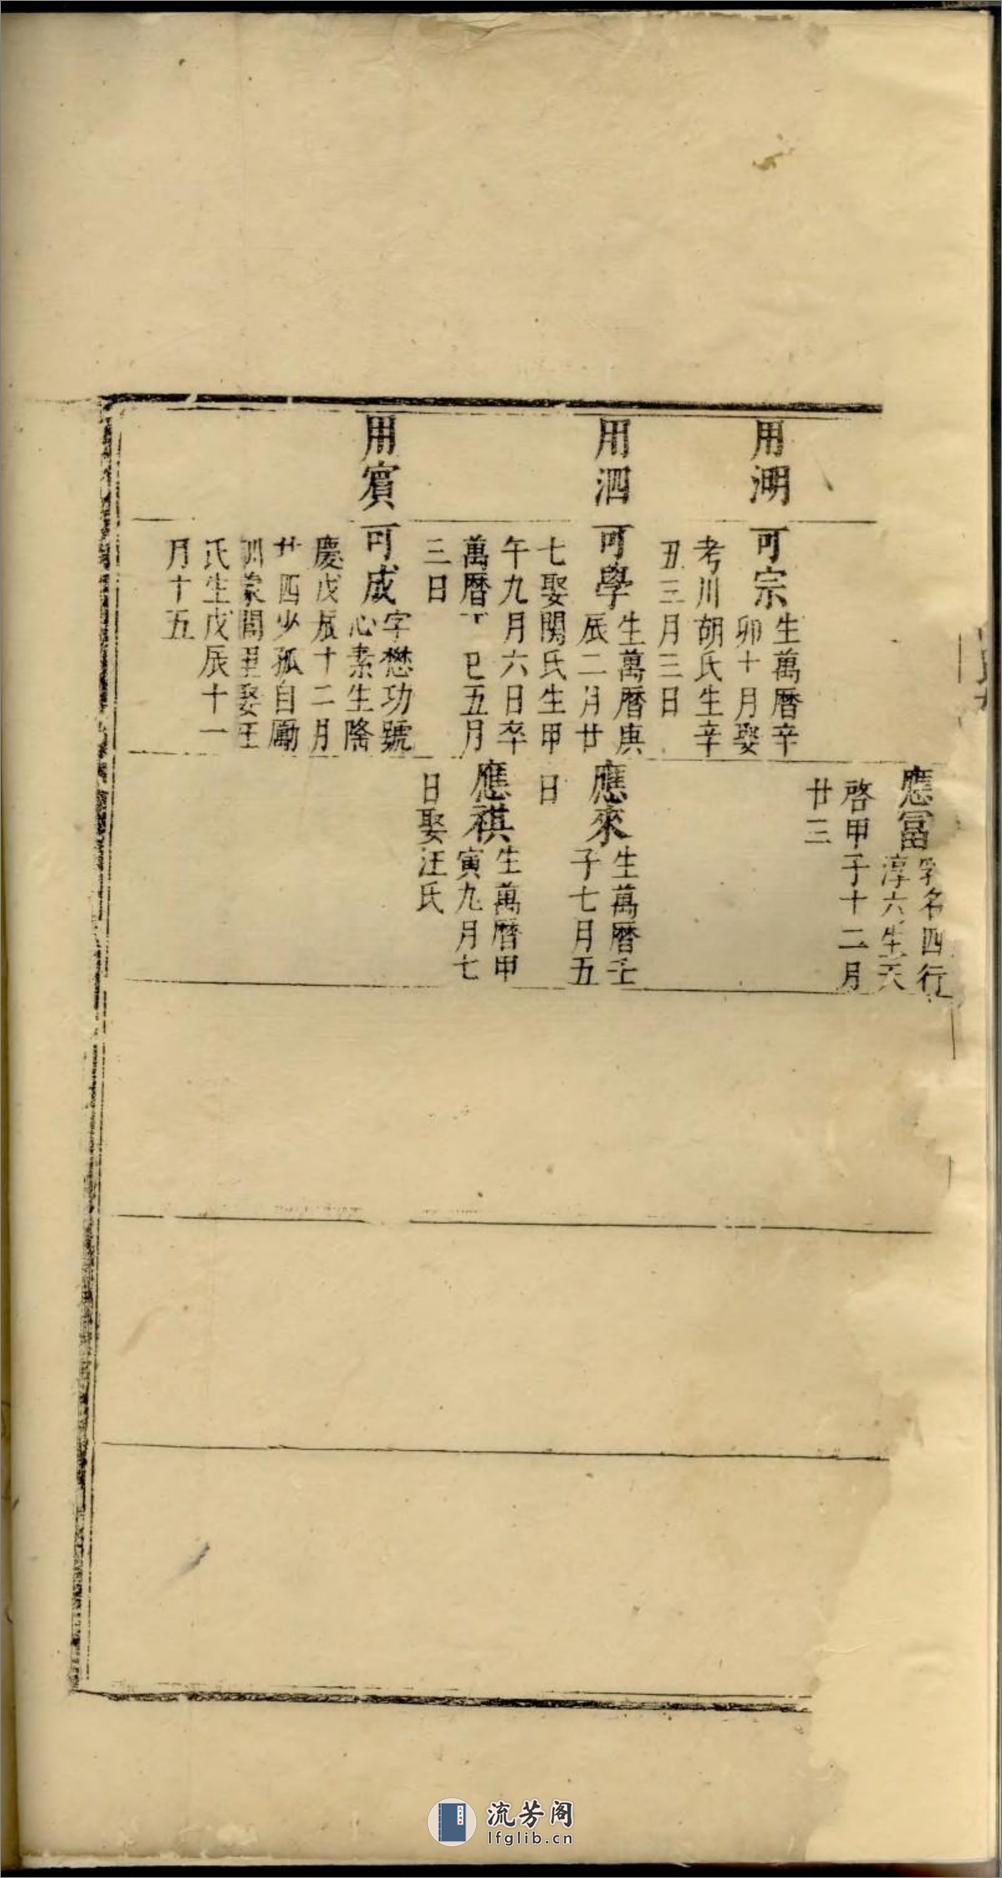 用湖
用泗
用賓
可宗
生萬曆辛
卯十月娶
考川胡氏生辛
丑三月三日
可學
生萬曆庚
辰二月廿
七娶關氏生甲
午九月六日卒
萬曆丁巳五月
三日
可成
字懋功號
心素生隆
慶戊辰十二月
廿四少孤自勵
訓蒙閭里娶汪
氏生戊辰十一
月十五
應富
乳名四行
淳六生天
啓甲子十二月
廿三
應來
生萬曆壬
子七月五
日
應祺
生萬曆甲
寅九月七
日娶汪氏
流芳阁
lfglib.cn